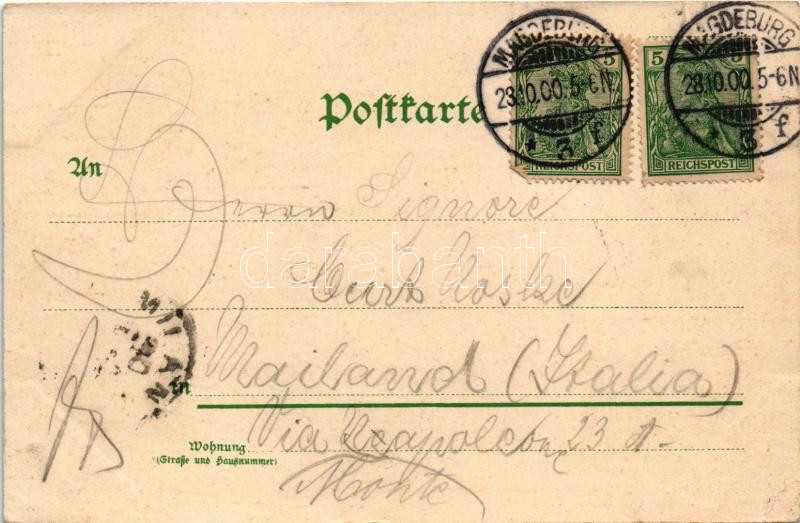 MAGDEBURG
28.10.00.5-6N.
* 3 f
5
REICHSPOST
MAGDEBURG
28.10.00.5-6N.
* 3 f
5 5
REICHSPOST
Postkarte
An
Herrn Signore
Curt
darabanth
MILANO
in Mailand (Italia)
Via 23
Wohnung
(Straße und Hausnummer)